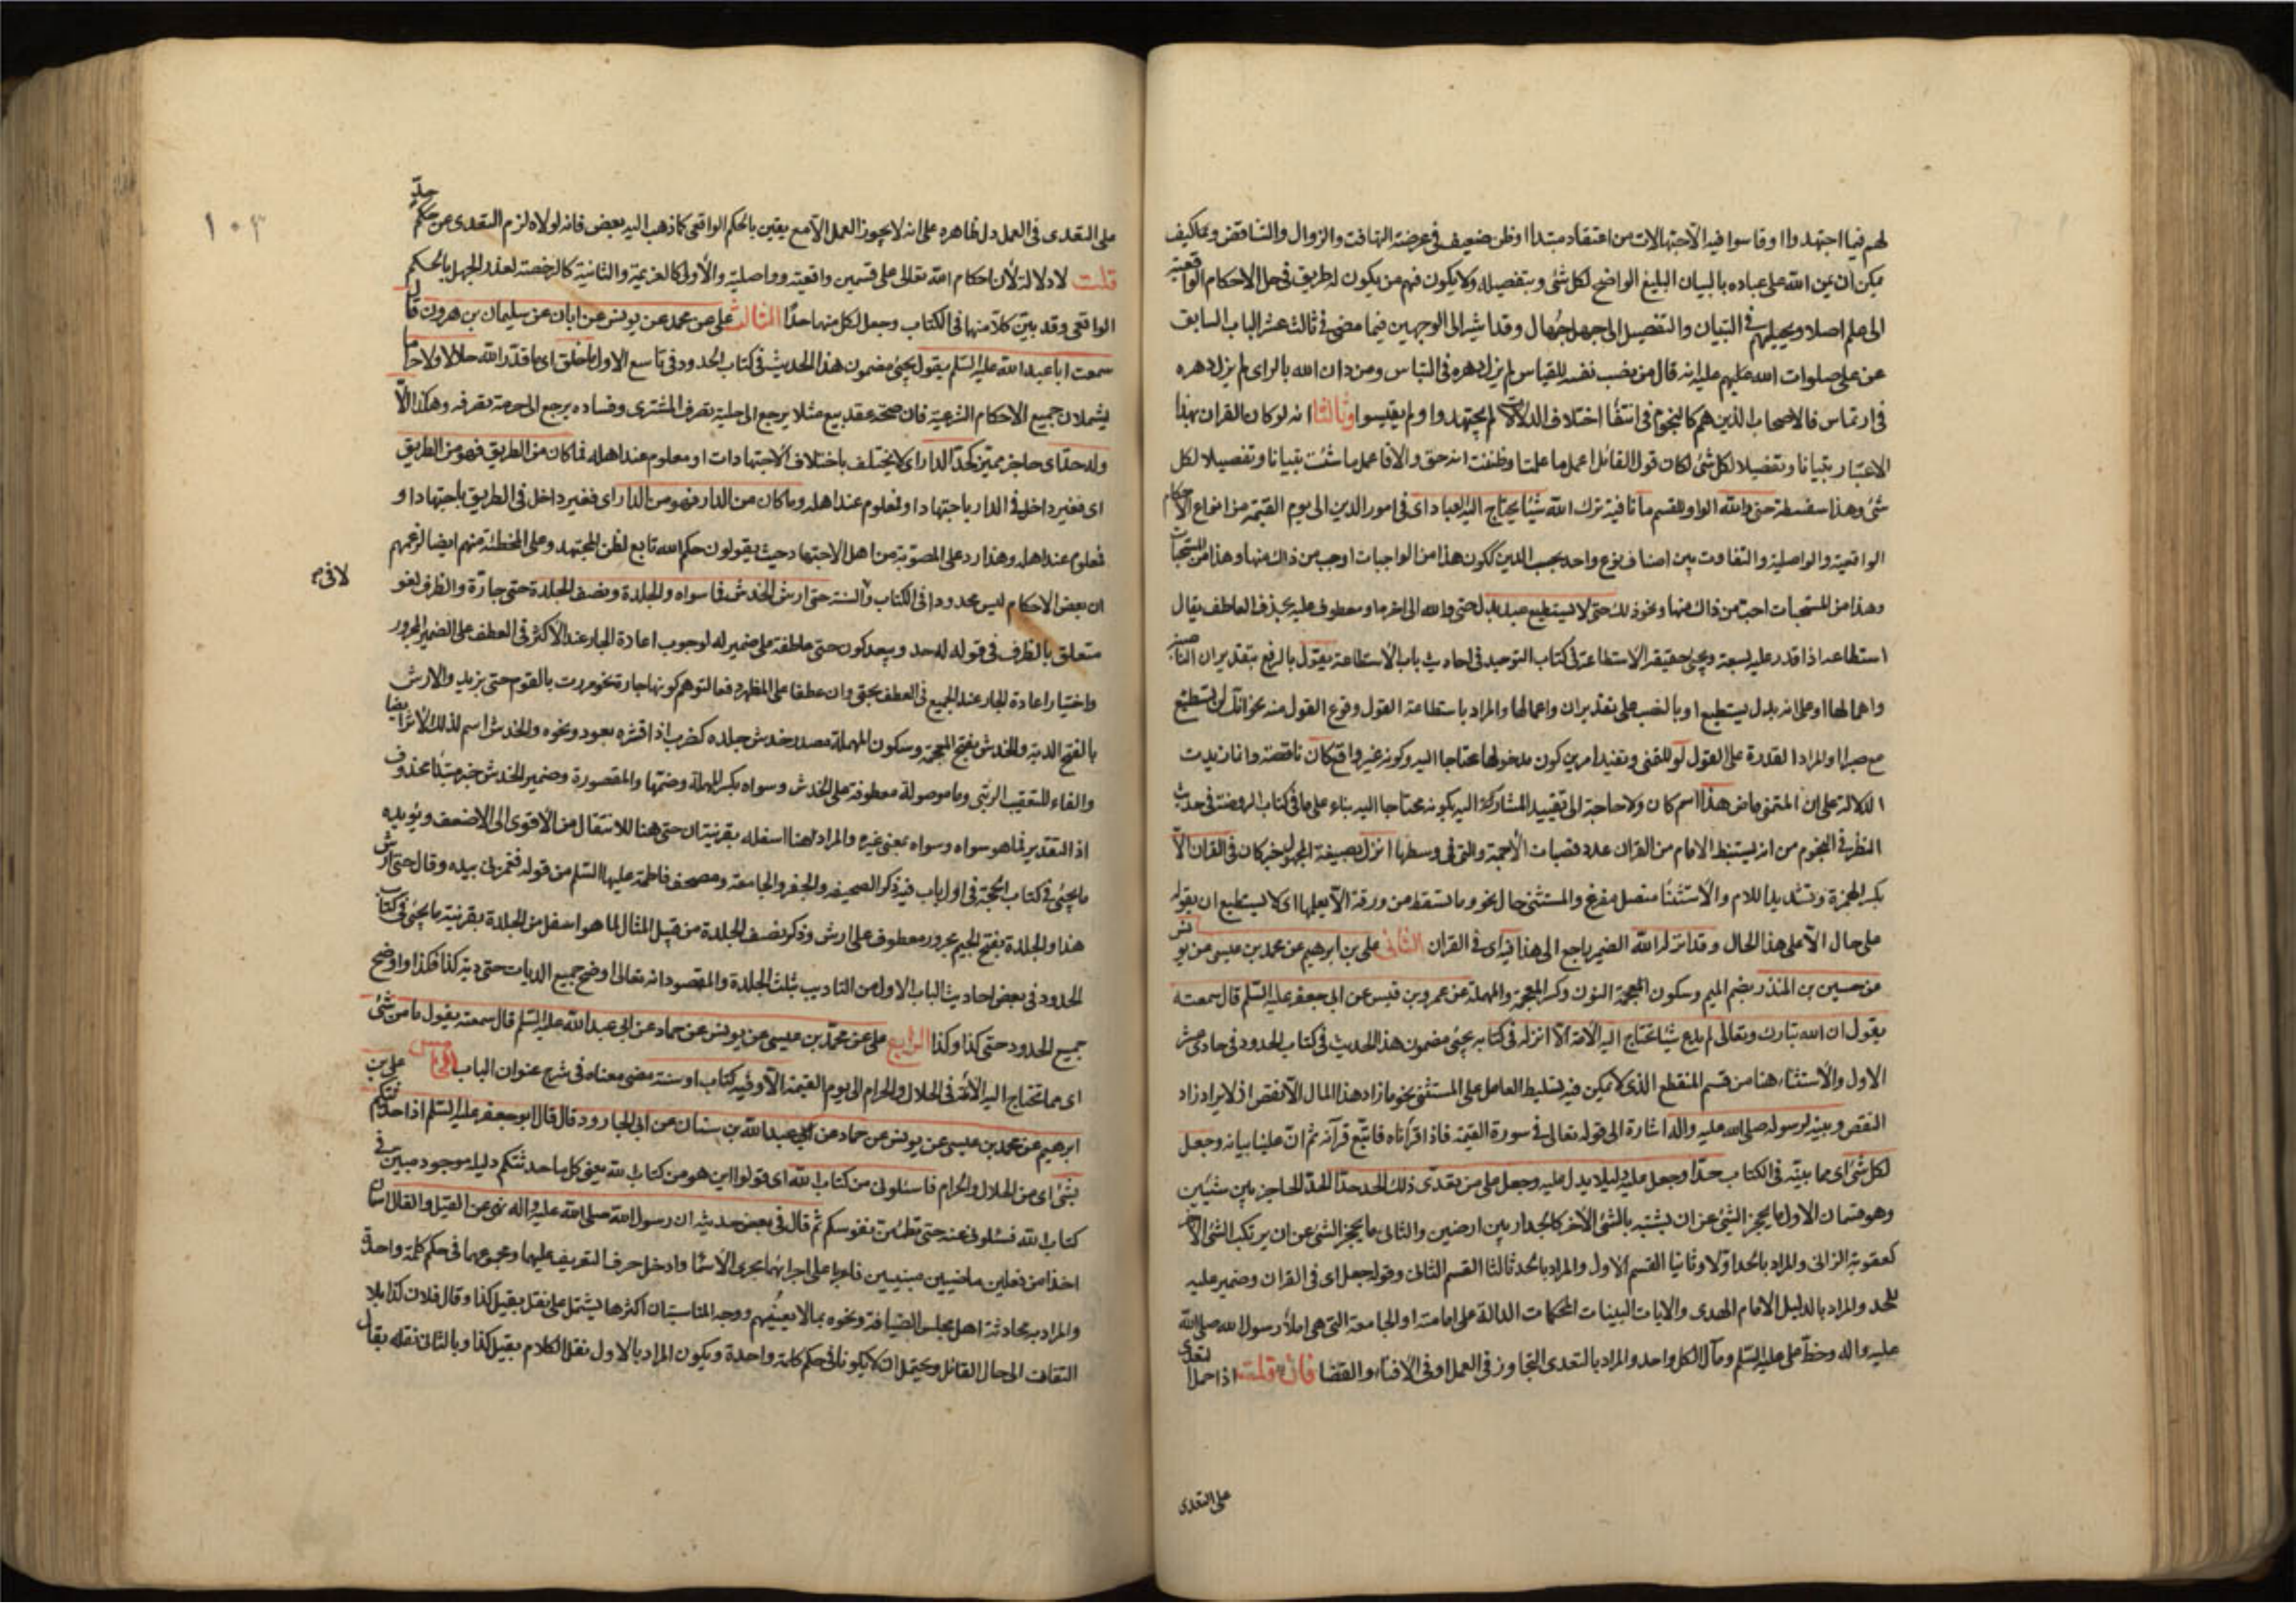 لهم فيما اجتهدوا او قاسوا فيه الاحتمالات من اعتقاد مبتدا او ظن ضعيف في عرضة التهافت والزوال والتناقض وبما كيف
يمكن ان يمن الله على عباده بالبيان البليغ الواضح لكل شئ وبتفصيله ولا يكون فهم من يكون له طريق في حل الاحكام الواقعية
الى علم اصلا ويحيلهم في التبيان والتفصيل الى جهل جهال وقد اشير الى الوجهين فيما مضى في ثالث عشر الباب السابق
عن على صلوات الله عليهم عليه انه قال من نصب نفسه للقياس لم يزل دهره في التباس ومن دان الله بالراى لم يزل دهره
في ارتماس فالاصحاب الذين هم كالنجوم في انتفا اختلاف الدلالات لم يجتهدوا ولم يقيسوا وثالثا انه لو كان القران بهذا
الاعتبار تبيانا وتفصيلا لكل شئ لكان قول القائل اعمل ما علمت وظننت انه حق والا فاعمل ما شئت تبيانا وتفصيلا لكل
شئ وهذا سفسطة حتى والله الواو للقسم ما نافية ترك الله شيئا يحتاج اليه العباد اى في امور الدين الى يوم القيمة من انواع الاحكام
الواقعية والواصلية والتفاوت بين اصناف نوع واحد بحسب الدين ككون هذا من الواجبات اوجب من ذاك منها وهذا من المستحبات
وهذا من المستحبات احب من ذاك منها ونحو ذلك حتى لا يستطيع عبد بدل حتى والله الى اخره او معطوف عليه بحذف العاطف يقال
استطاعه اذا قدر عليه بسعة ويجئ حقيقة الاستطاعة في كتاب التوحيد في احاديث باب الاستطاعة يقول بالرفع بتقدير ان الناصبة
واهمالها او على انه بدل يستطيع او بالنصب على تقدير ان واعمالها والمراد باستطاعة القول وقوع القول منه نحو انك لن تستطيع
مع صبرا والمراد القدرة على القول لو للتمنى وتفيد امرين كون مدخولها محتاجا اليه وكونه غير واقع كان ناقصة وانما زيدت
الدلالة على ان المتمنى ماض هذا اسم كان ولا حاجة الى تقييد المشار كة اليه بكونه محتاجا اليه بناء على ما في كتاب الروضة في حديث
النظر في النجوم من انه يستنبط الامام من القران عدد قصبات الاجمة والتى في وسطها انزل بصيغة المجهول خبر كان في القران الا
بكسر الهمزة وتشديد اللام والاستثنا متصل مفرغ والمستثنى حال نحو وما تسقط من ورقة الا يعلمها اى لا يستطيع ان يقوله
على حال الا على هذا الحال وقد انزله الله الضمير راجع الى هذا فيه اى في القران الثانى على بن ابرهيم عن محمد بن عيسى عن يونس
عن حسين بن المنذر بضم الميم وسكون المعجمة النون وكسر المعجمة والمهملة عن عمرو بن قيس عن ابى جعفر عليه السلم قال سمعته
يقول ان الله تبارك وتعالى لم يدع شيئا تحتاج اليه الامة الا انزله في كتابه يجئ مضمون هذا الحديث في كتاب الحدود في حادى عشر
الاول والاستثناء هنا من قسم المنقطع الذى لا يمكن فيه تسليط العامل على المستثنى نحو ما زاد هذا المال الا نقص اذ لا يراد زاد
النقص وبينه لرسوله صلى الله عليه واله اشارة الى قوله تعالى في سورة القيمة فاذا قراناه فاتبع قرآنه ثم ان علينا بيانه وجعل
لكل شئ اى مما بينه في الكتاب حدا وجعل عليه دليلا يدل عليه وجعل على من تعدى ذلك الحد حدا الحد للحاجز بين شيئين
وهو قسمان الاول ما يحجز الشئ عن ان يشتبه بالشئ الاخر كالجدار بين ارضين والثانى ما يحجز الشئ عن ان يرتكب الشئ الاخر
كعقوبة الزانى والمراد بالحد اولا وثانيا القسم الاول والمراد بالحد ثالثا القسم الثانى وقوله جعل اى في القران وضمير عليه
للحد والمراد بالدليل الامام المهدى والايات البينات المحكمات الدالة على امامته او الجامعة التى هى املا رسول الله صلى الله
عليه واله وخط على عليه السلم ومآل الكل واحد والمراد بالتعدى التجاوز في العمل او في الافتاء والقضا فان قلت اذا حمل التعدى
على التعدى
على التعدى في العمل دل ظاهره على انه لا يجوز العمل الا مع يقين بالحكم الواقعى كما ذهب اليه بعض فانه لولاه لزم التعدى عن حكم حد
قلت لا دلالة لأن احكام الله تعالى على قسمين واقعية وواصلية والأولى كالعزيمة والثانية كالرخصة لعذر الجهل بالحكم
الواقعى وقد بين كلا منها في الكتاب وجعل لكل منهما حدا الثالث على عن محمد عن يونس عن ابان عن سليمان بن هرون قال
سمعت ابا عبد الله عليه السلم يقول يجئ مضمون هذا الحديث في كتاب الحدود في تاسع الاول ما خلق اى ما قدر الله حلالا ولا حراما
يشملان جميع الاحكام الشرعية فان صحة عقد بيع مثلا يرجع الى حلية تصرف المشترى وفساده يرجع الى حرمة تصرفه وهكذا الا
وله حد اى حاجز مميز كحد الدار اى لا يختلف باختلاف الاجتهادات او معلوم عند اهله فما كان من الطريق فهو من الطريق
اى فغير داخل في الدار باجتهاد او فمعلوم عند اهله وما كان من الدار فهو من الدار اى فغير داخل في الطريق باجتهاد او
فمعلوم عند اهله وهذا رد على المصوبة من اهل الاجتهاد حيث يقولون حكم الله تابع لظن المجتهد وعلى المخطئة منهم ايضا لزعمهم
ان بعض الاحكام ليس محدودا في الكتاب والسنة حتى ارش الخدش فما سواه والجلدة ونصف الجلدة حتى جارة والظرف لغو
متعلق بالظرف في قوله له حد ويبعد كون حتى عاطفة على ضمير له لوجوب اعادة الجار عند الاكثر في العطف على الضمير المجرور
واختيار اعادة الجار عند الجميع في العطف بحتى وان عطفا على المظهر دفعا لتوهم كونها جارة نحو مررت بالقوم حتى بزيد والارش
بالفتح الدية والخدش بفتح المعجمة وسكون المهملة مصدر خدش جلده كضرب اذا قشره بعود ونحوه والخدش اسم لذلك الاثر ايضا
والفاء للتعقيب الرتبى وما موصولة معطوفة على الخدش وسواه بكسر المهملة وضمها والمقصورة وضمير الخدش خبر مبتدا محذوف
اذ التقدير فما هو سواه وسواه بمعنى غيره والمراد هنا اسفله بقرينة ان حتى هنا للانتقال من الاقوى الى الاضعف ويؤيده
ما يجئ في كتاب الحجة في اول باب فيه ذكر الصحيفة والجفر والجامعة ومصحف فاطمة عليها السلم من قوله فغمزنى بيده وقال حتى ارش
هذا والجلدة بفتح الجيم مجرور معطوف على ارش وذكر نصف الجلدة من قبيل المثال لما هو اسفل من الجلدة بقرينة ما يجئ في كتاب
الحدود في بعض احاديث الباب الاول من التاديب بثلث الجلدة والمقصود انه تعالى اوضح جميع الديات حتى دية كذا فكذا واوضح
جميع الحدود حتى كذا وكذا الرابع على عن محمد بن عيسى عن يونس عن حماد عن ابى عبد الله عليه السلم قال سمعته يقول ما من شئ
اى مما تحتاج اليه الامة في الحلال والحرام الى يوم القيمة الا وفيه كتاب او سنة مضى معناه في شرح عنوان الباب الخامس على بن
ابرهيم عن محمد بن عيسى عن يونس عن حماد عن عبد الله بن سنان عن ابى الجارود قال قال ابو جعفر عليه السلم اذا حدثتكم
بشئ اى من الحلال والحرام فاسئلونى من كتاب الله اى قولوا اين هو من كتاب الله يعنى كل ما حدثتكم دليله موجود مبين في
كتاب الله فسئلونى عنه حتى تطمئن نفوسكم ثم قال في بعض حديثه ان رسول الله صلى الله عليه واله نهى عن القيل والقال اسمان
اخذا من فعلين ماضيين مبنيين فاعربا على اجرائهما مجرى الأسما وادخل حرف التعريف عليهما ومجموعهما في حكم كلمة واحدة
والمراد به محادثة اهل مجلس الضيافة ونحوه بما لا يعنيهم ووجه المناسبة ان اكثرها يشتمل على نقل بقيل كذا وقال فلان كذا بلا
التفات الى حال القائل ويحتمل ان لا يكونا في حكم كلمة واحدة ويكون المراد بالاول نقل الكلام بقيل كذا وبالثانى نقله بقال
١٠٣